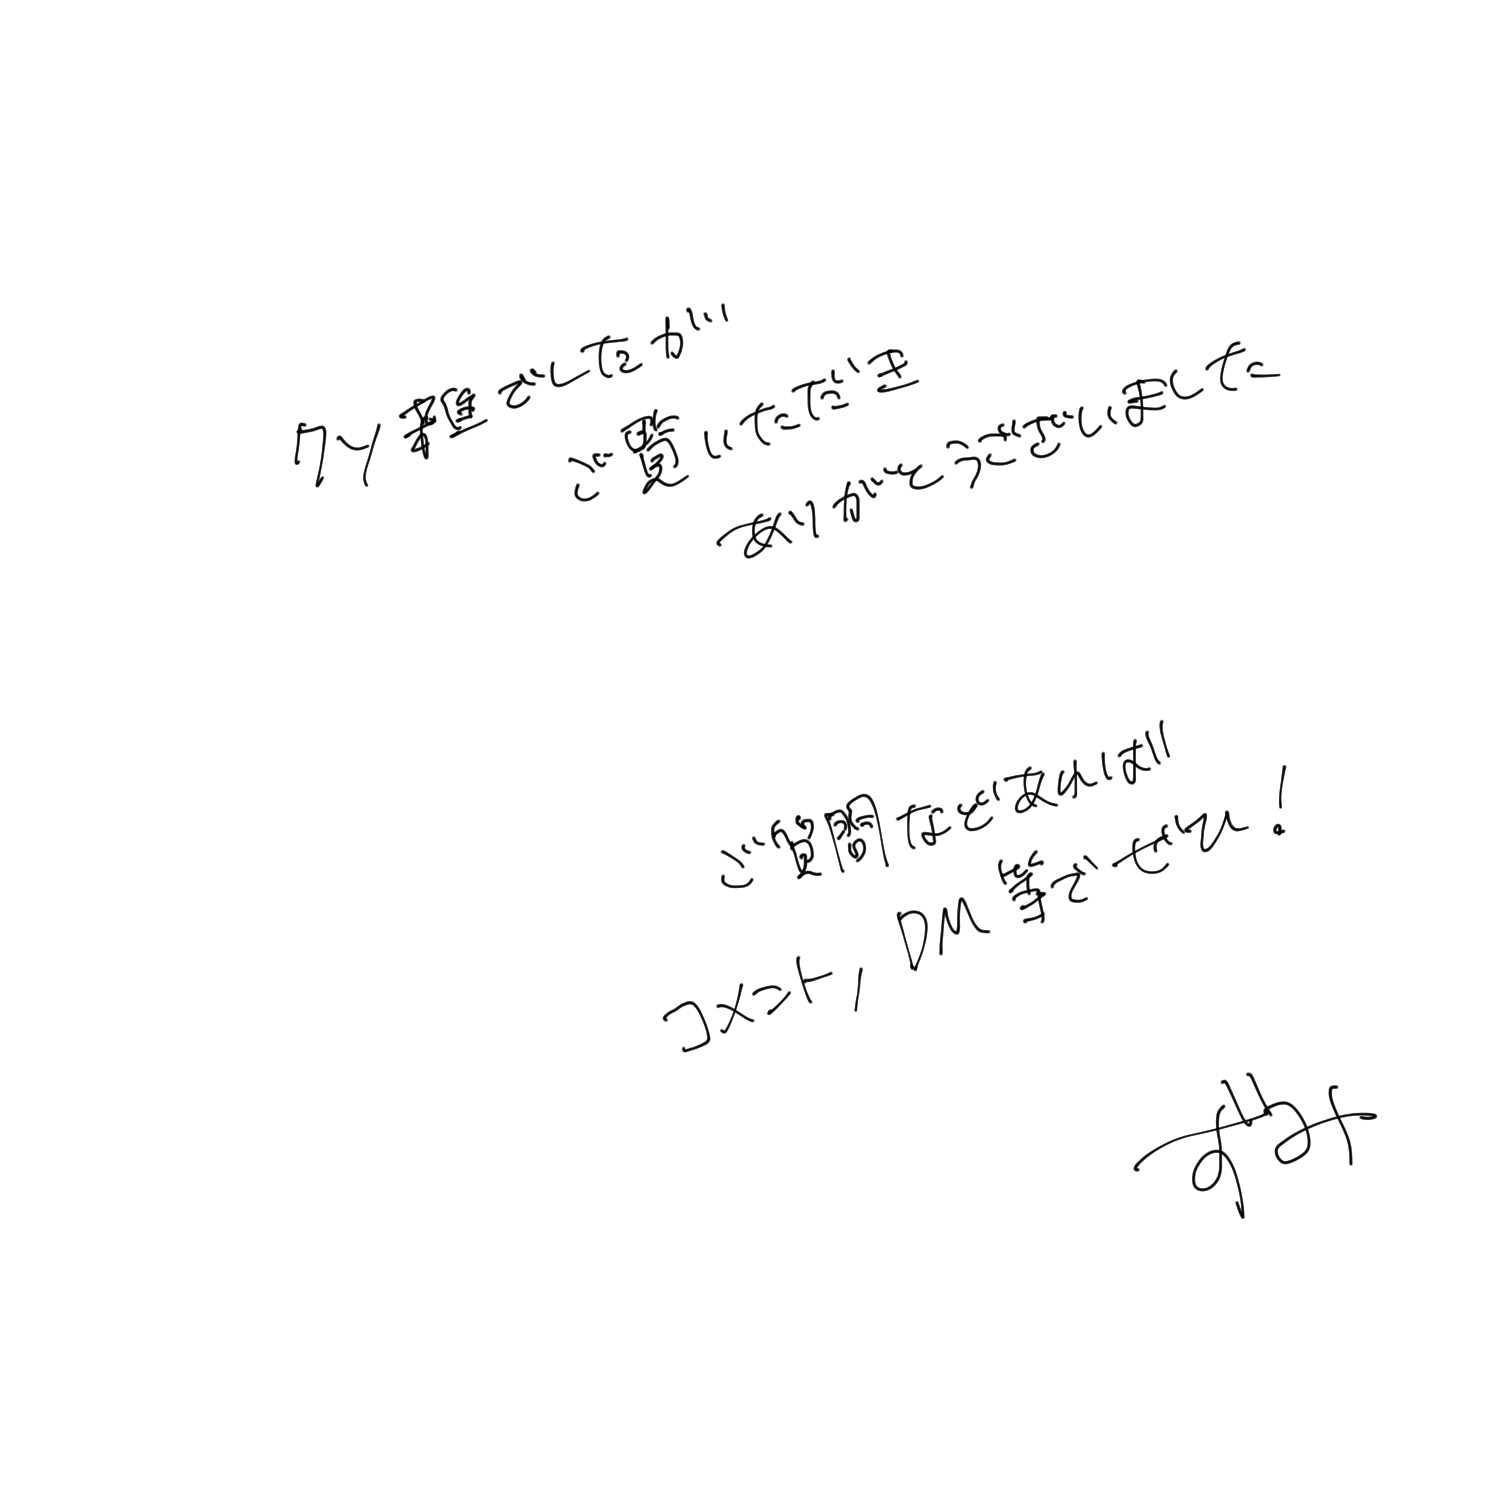 クソ雑でしたが
ご覧いただき
ありがとうございました
ご質問などあれば
コメント, DM等でぜひ!